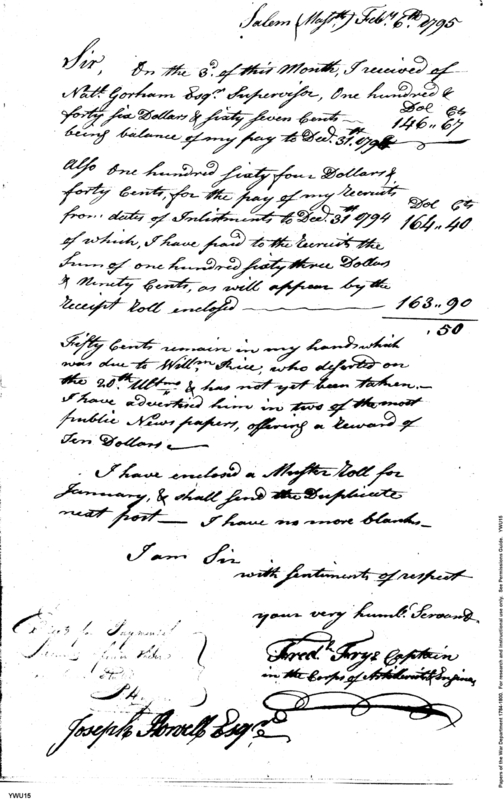 Salem (Massts.) Feby. 6th. 1795
Sir, On the 3d. of this Month, I received of
Natl. Gorham Esqr. Supervisor, One hundred &
forty six Dollars & sixty seven Cents
Dol Cts
146..67
being balance of my pay to Decr. 31st. 1794
Also One hundred sixty four Dollars &
forty Cents, for the pay of my Recruits
Dol Cts
from dates of Inlistments to Decr. 31st 1794
164..40
of which, I have paid to the Recruits the
Sum of one hundred sixty three Dollars
& Ninety Cents, as will appear by the
Receipt Roll enclosed
163..90
.50
Fifty Cents remain in my hands which
was due to Willm. Price, who deserted on
the 20th. Ultmo & has not yet been taken.
I have advertised him in two of the most
public News papers, offering a Reward of
Ten Dollars.
I have enclosed a Muster Roll for
January, & shall send the Duplicate
next post — I have no more blanks —
I am Sir
with sentiments of respect
your very humbl. Servant
Fredk. Frye Captain
in the Corps of Artillerists & Engineers
Joseph Howell Esqre.
YWU15
Papers of the War Department 1784-1800. For research and instructional use only. See Permissions Guide. YWU15